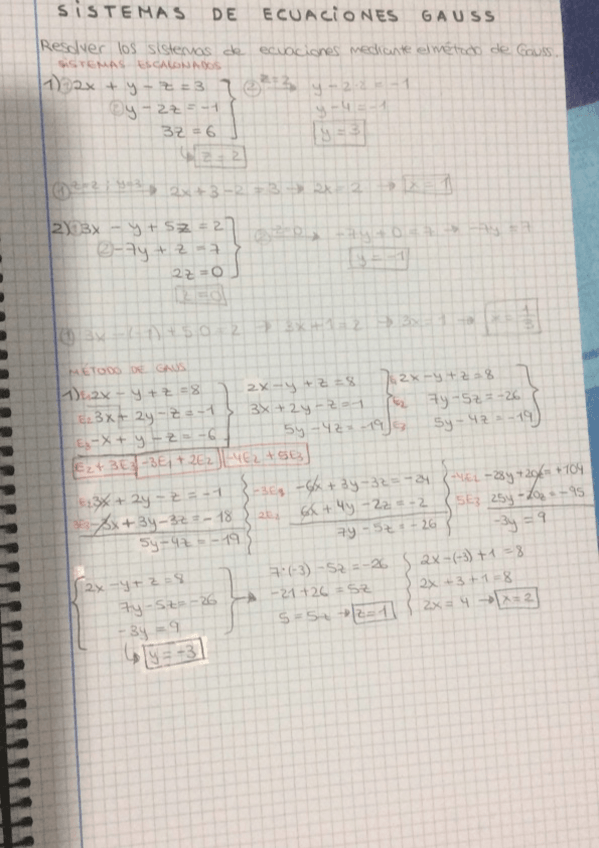 SISTEMAS DE ECUACIONES GAUSS
Resolver los sistemas de ecuaciones mediante el método de Gauss.
SISTEMAS ESCALONADOS
1) ① 2x + y - z = 3
② y - 2z = -1
3z = 6
z = 2
② z=2 → y - 2·2 = -1
y - 4 = -1
y = 3
① z=2 ; y=3 → 2x + 3 - 2 = 3 → 2x = 2 → x = 1
2) ① 3x - y + 5z = 2
② -7y + z = 7
2z = 0
z = 0
② z=0 → -7y + 0 = 7 → -7y = 7
y = -1
① 3x - (-1) + 5·0 = 2 → 3x + 1 = 2 → 3x = 1 → x = 1/3
METODO DE GAUS
1) E₁ 2x - y + z = 8
E₂ 3x + 2y - z = -1
E₃ -x + y - z = -6
2x - y + z = 8
3x + 2y - z = -1
5y - 4z = -19
2x - y + z = 8
E₂ 7y - 5z = -26
5y - 4z = -19
E₂ + 3E₃ -3E₁ + 2E₂ -4E₂ + 5E₃
E₂ 3x + 2y - z = -1
3E₃ -3x + 3y - 3z = -18
5y - 4z = -19
-3E₁ -6x + 3y - 3z = -24
2E₂ 6x + 4y - 2z = -2
7y - 5z = -26
-4E₂ -28y + 20z = +104
5E₃ 25y - 20z = -95
-3y = 9
2x - y + z = 8
7y - 5z = -26
-3y = 9
y = -3
7·(-3) - 5z = -26
-21 + 26 = 5z
5 = 5z → z = 1
2x - (-3) + 1 = 8
2x + 3 + 1 = 8
2x = 4 → x = 2